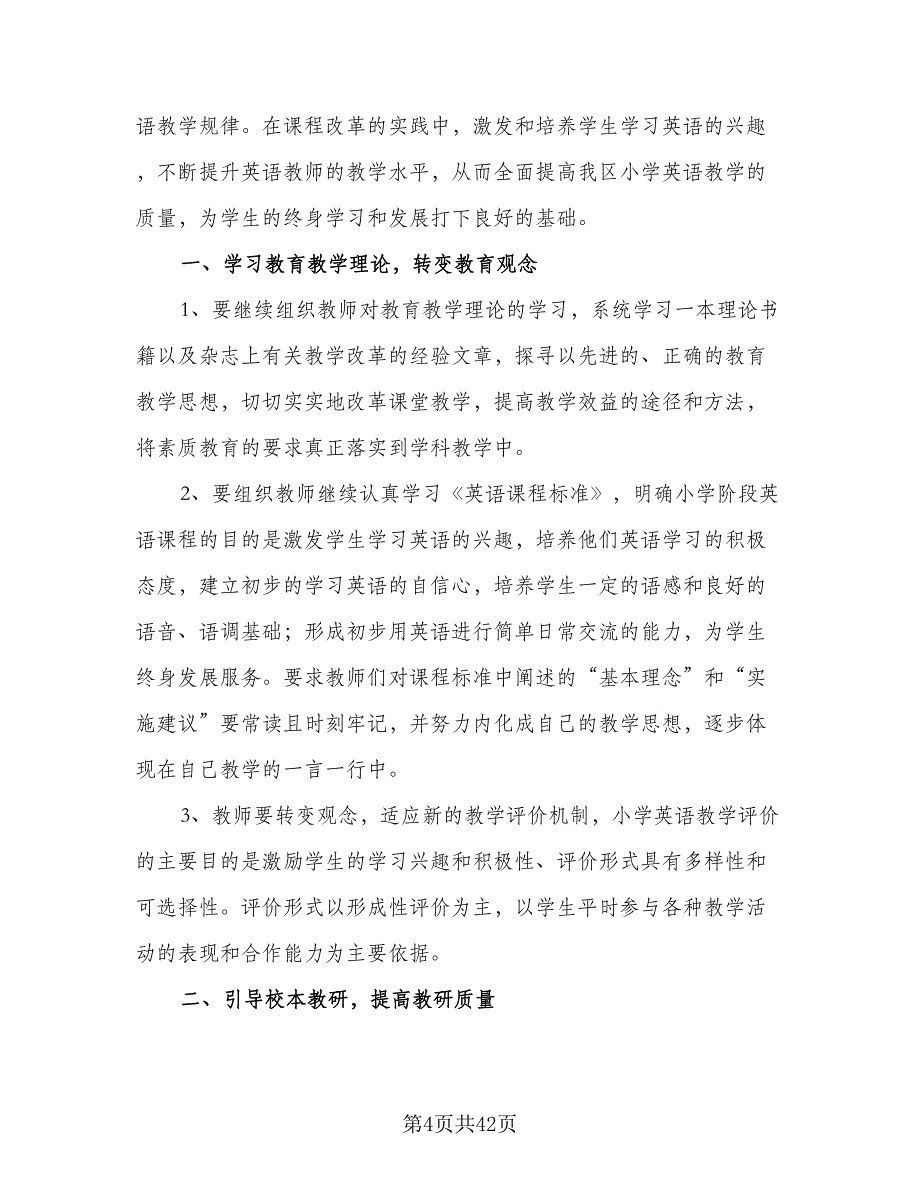 语教学规律。在课程改革的实践中，激发和培养学生学习英语的兴趣
，不断提升英语教师的教学水平，从而全面提高我区小学英语教学的
质量，为学生的终身学习和发展打下良好的基础。
一、学习教育教学理论，转变教育观念
1、要继续组织教师对教育教学理论的学习，系统学习一本理论书
籍以及杂志上有关教学改革的经验文章，探寻以先进的、正确的教育
教学思想，切切实实地改革课堂教学，提高教学效益的途径和方法，
将素质教育的要求真正落实到学科教学中。
2、要组织教师继续认真学习《英语课程标准》，明确小学阶段英
语课程的目的是激发学生学习英语的兴趣，培养他们英语学习的积极
态度，建立初步的学习英语的自信心，培养学生一定的语感和良好的
语音、语调基础；形成初步用英语进行简单日常交流的能力，为学生
终身发展服务。要求教师们对课程标准中阐述的“基本理念”和“实
施建议”要常读且时刻牢记，并努力内化成自己的教学思想，逐步体
现在自己教学的一言一行中。
3、教师要转变观念，适应新的教学评价机制，小学英语教学评价
的主要目的是激励学生的学习兴趣和积极性、评价形式具有多样性和
可选择性。评价形式以形成性评价为主，以学生平时参与各种教学活
动的表现和合作能力为主要依据。
二、引导校本教研，提高教研质量
第4页共42页